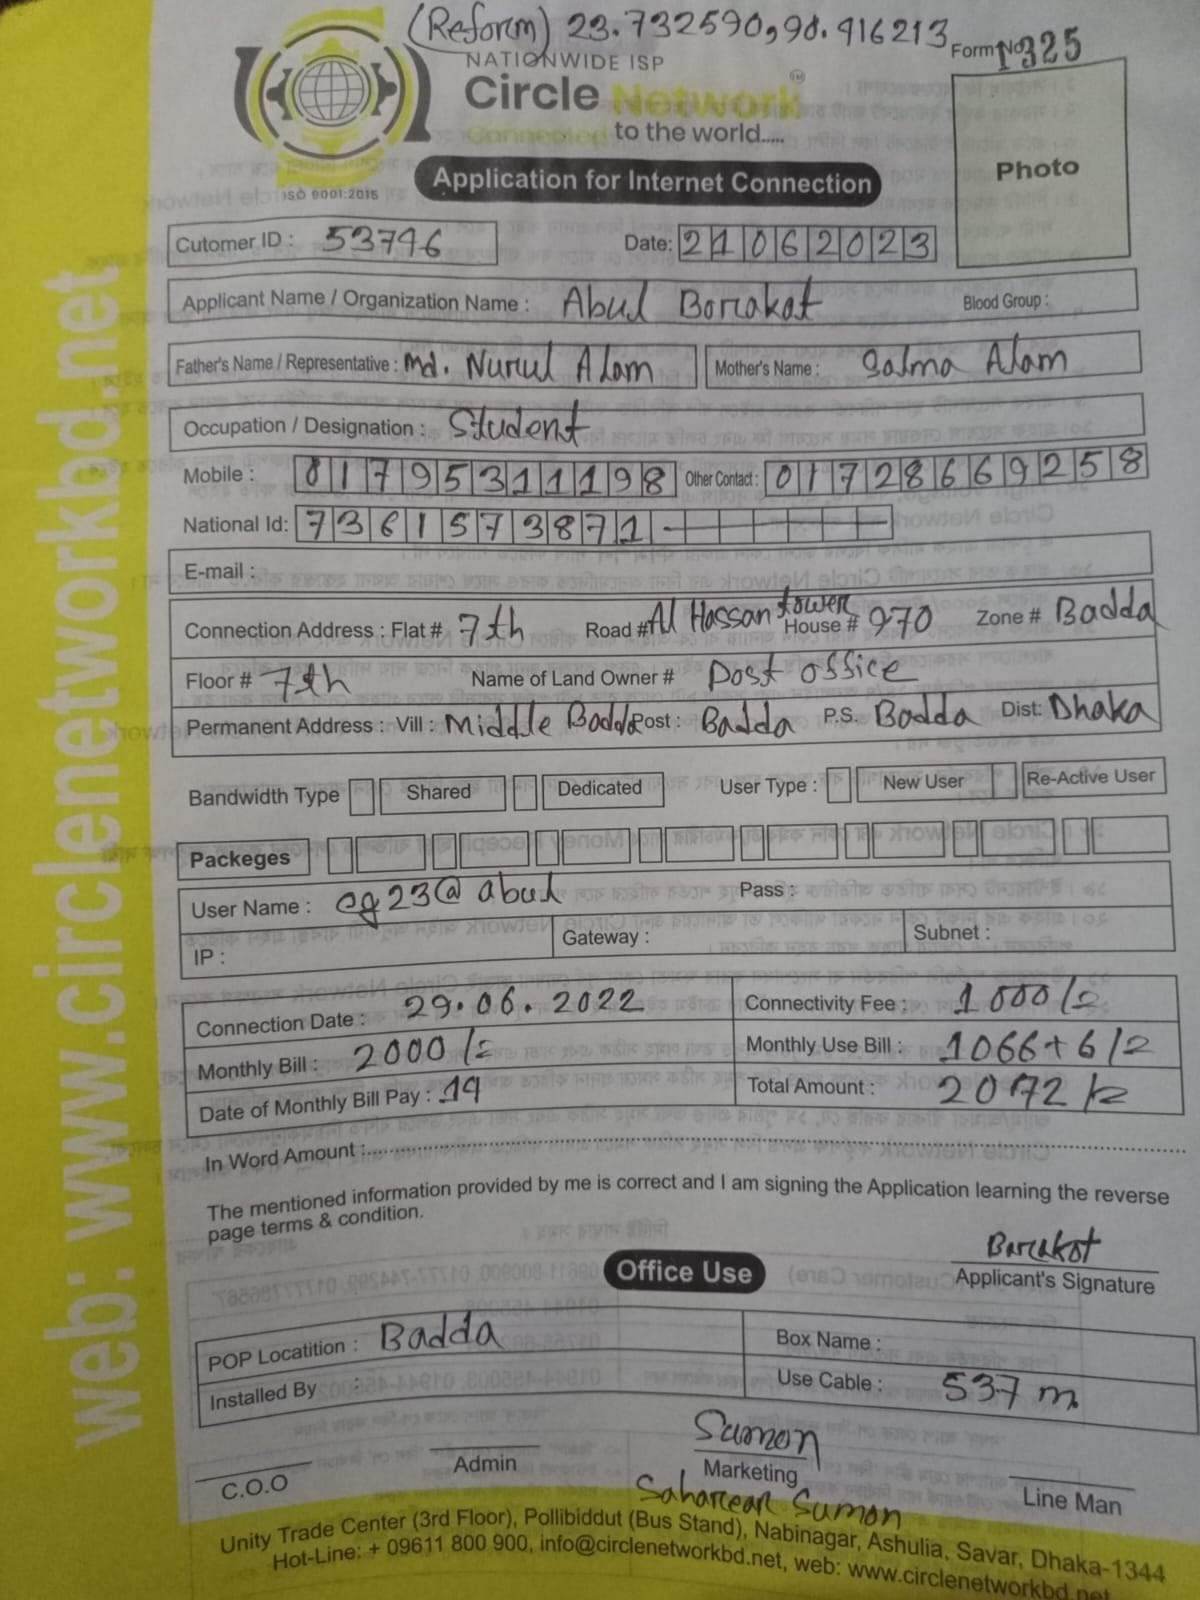 (Reform) 23.732590,90.416213
Form No 1325
NATIONWIDE ISP
Circle Network TM
Connected to the world.....
ISO 9001:2015
Application for Internet Connection
Photo
Cutomer ID : 53746
Date: 21062023
Applicant Name / Organization Name : Abul Borakat Blood Group :
Father's Name / Representative : Md. Nurul Alam Mother's Name : Salma Alam
Occupation / Designation : Student
Mobile : 01795311198 Other Contact : 01728669258
National Id: 7361573871
E-mail :
Connection Address : Flat # 7th Road # Al Hassan tower House # 970 Zone # Badda
Floor # 7th Name of Land Owner # Post office
Permanent Address : Vill : Middle Badda Post : Badda P.S. Badda Dist: Dhaka
Bandwidth Type Shared Dedicated User Type : New User Re-Active User
Packeges
User Name : cg23@abul Pass :
IP : Gateway : Subnet :
Connection Date : 29.06.2022 Connectivity Fee : 1000/=
Monthly Bill : 2000/= Monthly Use Bill : 1066+6/=
Date of Monthly Bill Pay : 14 Total Amount : 2072/=
In Word Amount :
The mentioned information provided by me is correct and I am signing the Application learning the reverse
page terms & condition.
Borakot
Applicant's Signature
Office Use
POP Locatition : Badda Box Name :
Installed By : Use Cable : 537 m
Sumon
C.O.O Admin Marketing Line Man
Saharear Sumon
Unity Trade Center (3rd Floor), Pollibiddut (Bus Stand), Nabinagar, Ashulia, Savar, Dhaka-1344
Hot-Line: + 09611 800 900, info@circlenetworkbd.net, web: www.circlenetworkbd.net
web: www.circlenetworkbd.net